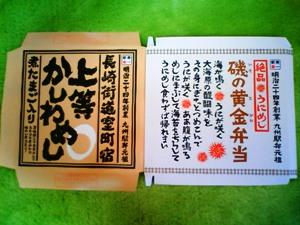 明治二十四年創業 九州駅弁元祖
絶品 うにめし
磯の黄金弁当
海が鳴く うにが咲く
大海原の醍醐味を
えの身にぎっとつめこんで
うにが咲く あゝ腹が鳴る
めしにまぶして海苔をちらして
うにめし食わずば帰れまい
明治二十四年創業 九州駅弁元祖
長崎街道室町宿
上等
かしわめし
煮たまご入り